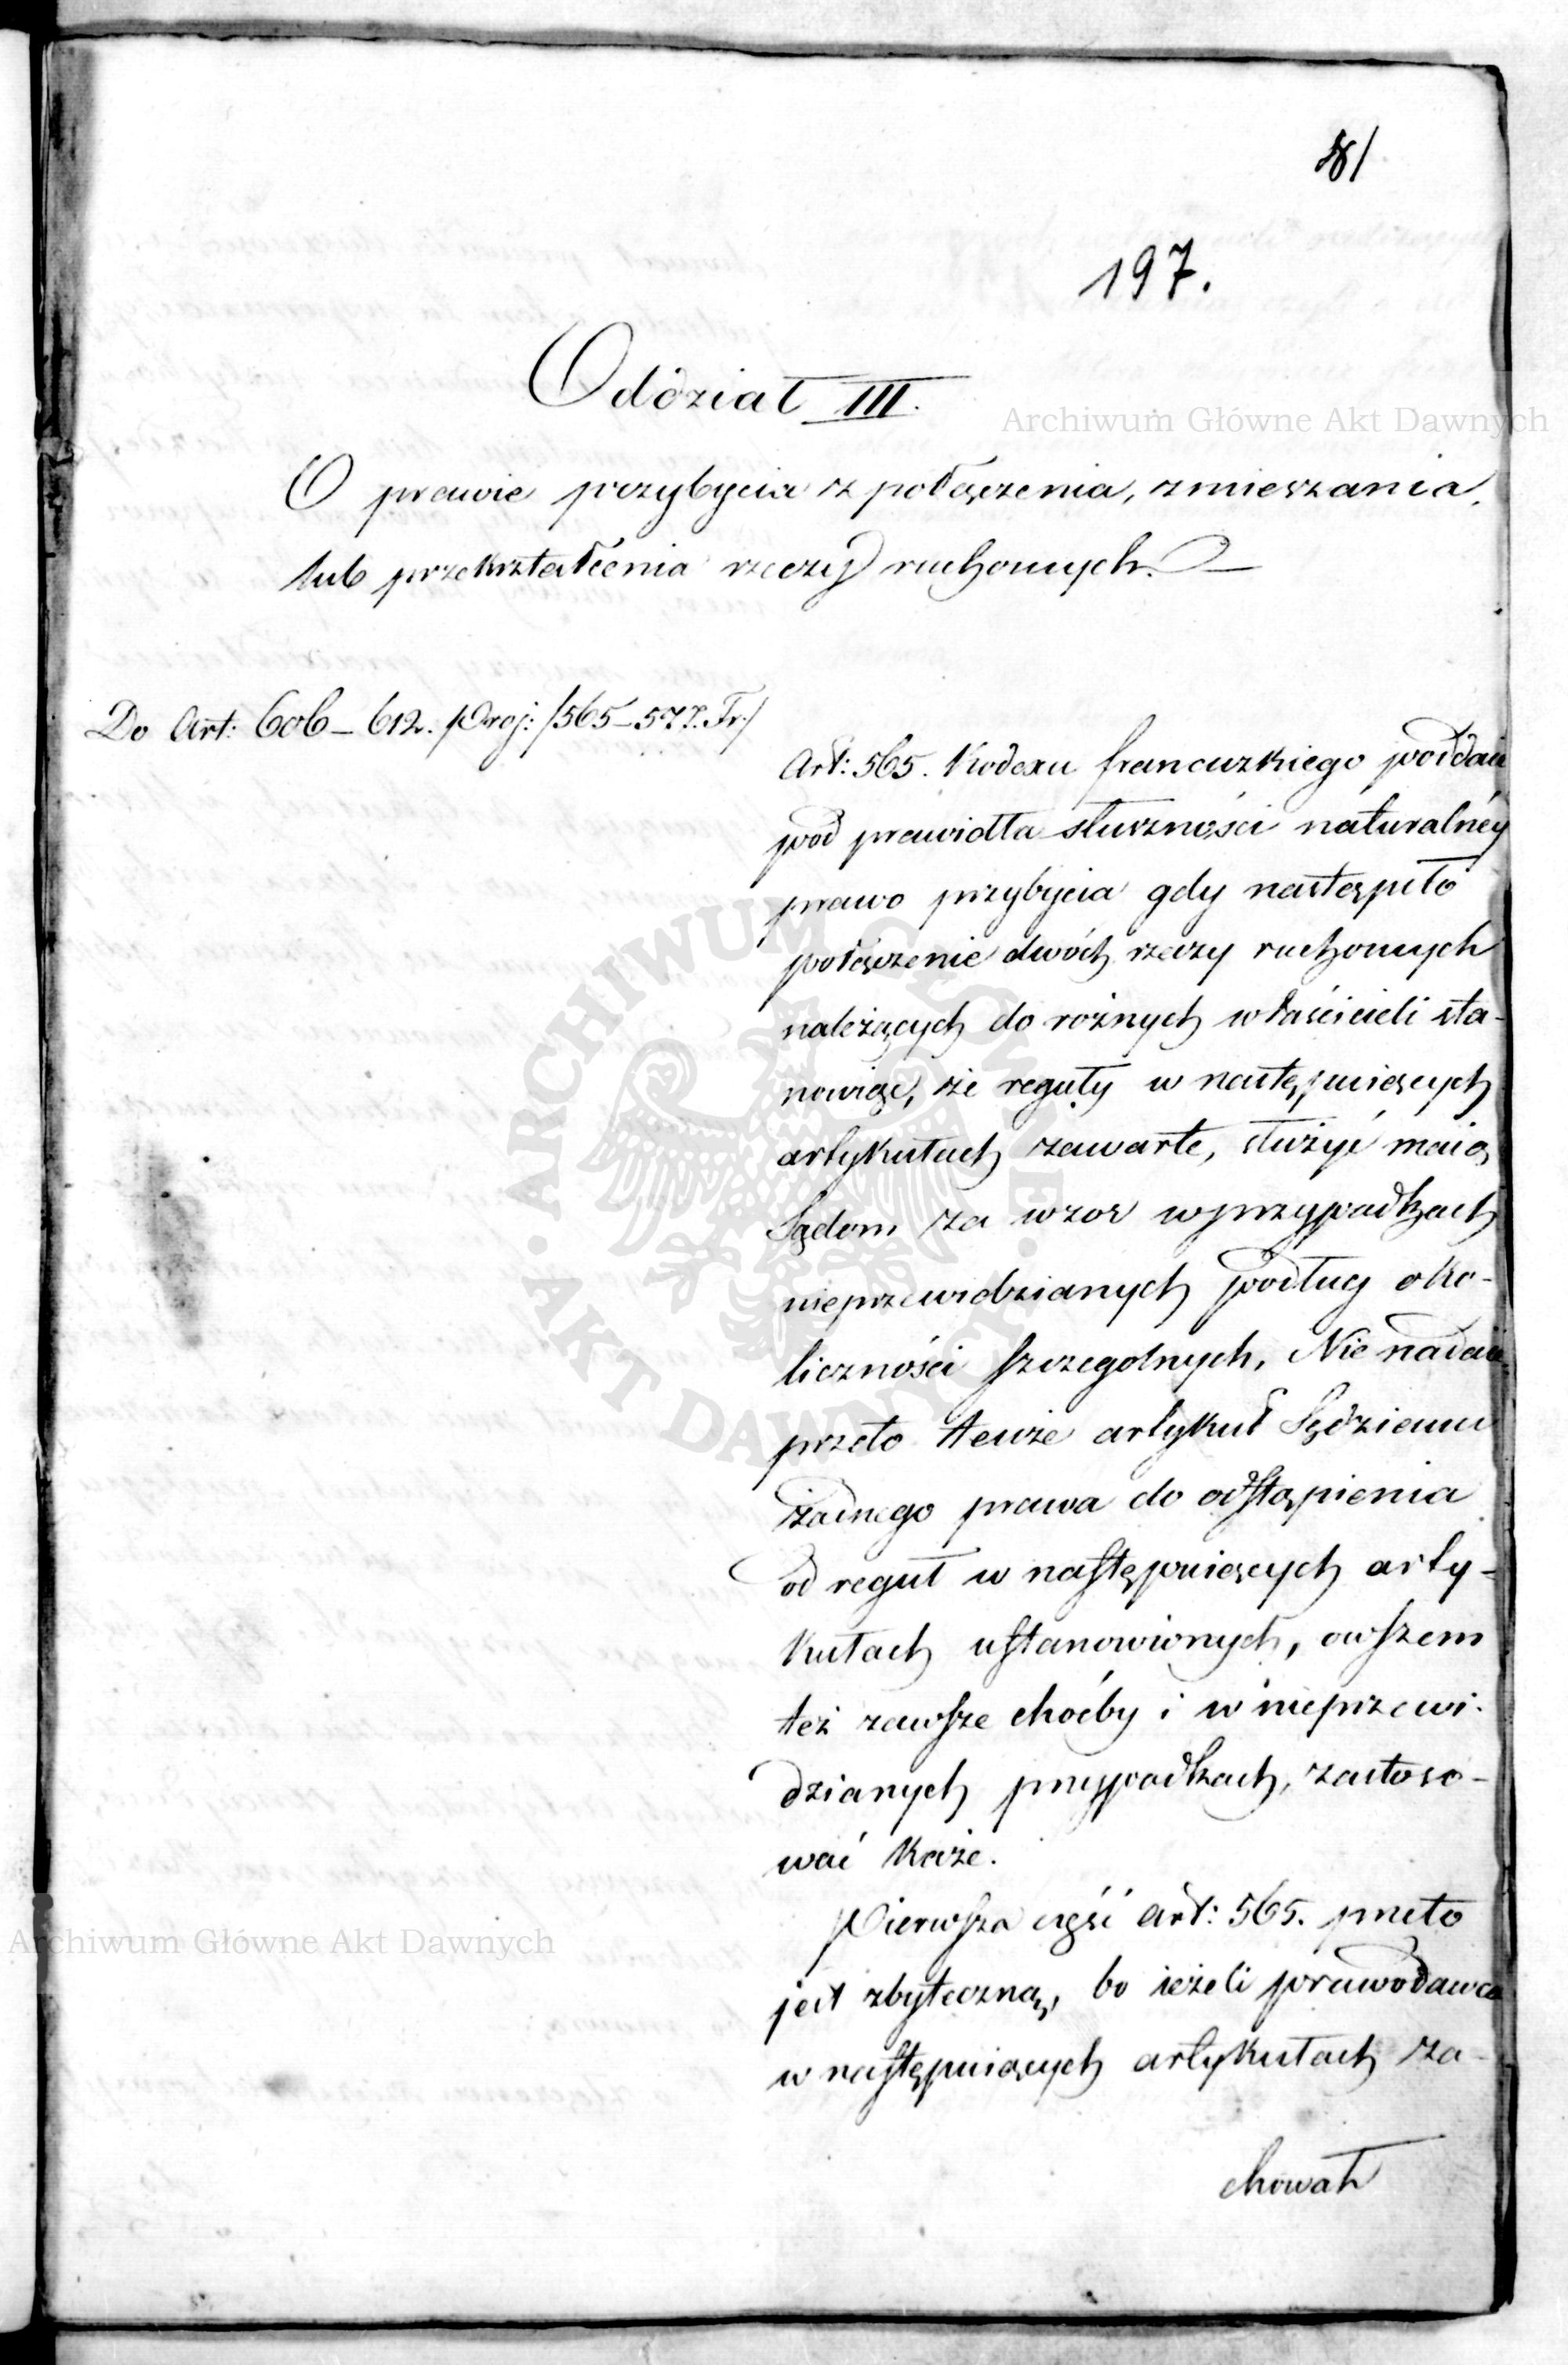 81
197.
Oddział III.
Archiwum Główne Akt Dawnych
O prawie przybycia z połączenia, zmieszania,
lub przekształcenia rzeczy ruchomych.
Do Art: 606 – 612. Proj: /565–577. Fr./
Art: 565. Kodexu francuzkiego poddaie
pod prawidła słuszności naturalnéy
prawo przybycia gdy nastąpiło
połączenie dwóch rzeczy ruchomych
należących do rożnych właścicieli sta-
nowiąc, że reguły w następuiących
artykułach zawarte, służyć maią
Sądom za wzor w przypadkach
nieprzewidzianych podług oko-
liczności szczegolnych. Nie nadaie
przeto tenże artykuł Sędziemu
żadnego prawa do odstąpienia
od reguł w następuiących arty-
kułach ustanowionych, owszem
też zawsze choćby i w nieprzewi-
dzianych przypadkach, zastoso-
wać każe.
Pierwsza część art: 565. przeto
jest zbyteczną, bo ieżeli prawodawca
w następuiących artykułach za-
chował
Archiwum Główne Akt Dawnych
ARCHIWUM GŁÓWNE • AKT DAWNYCH •